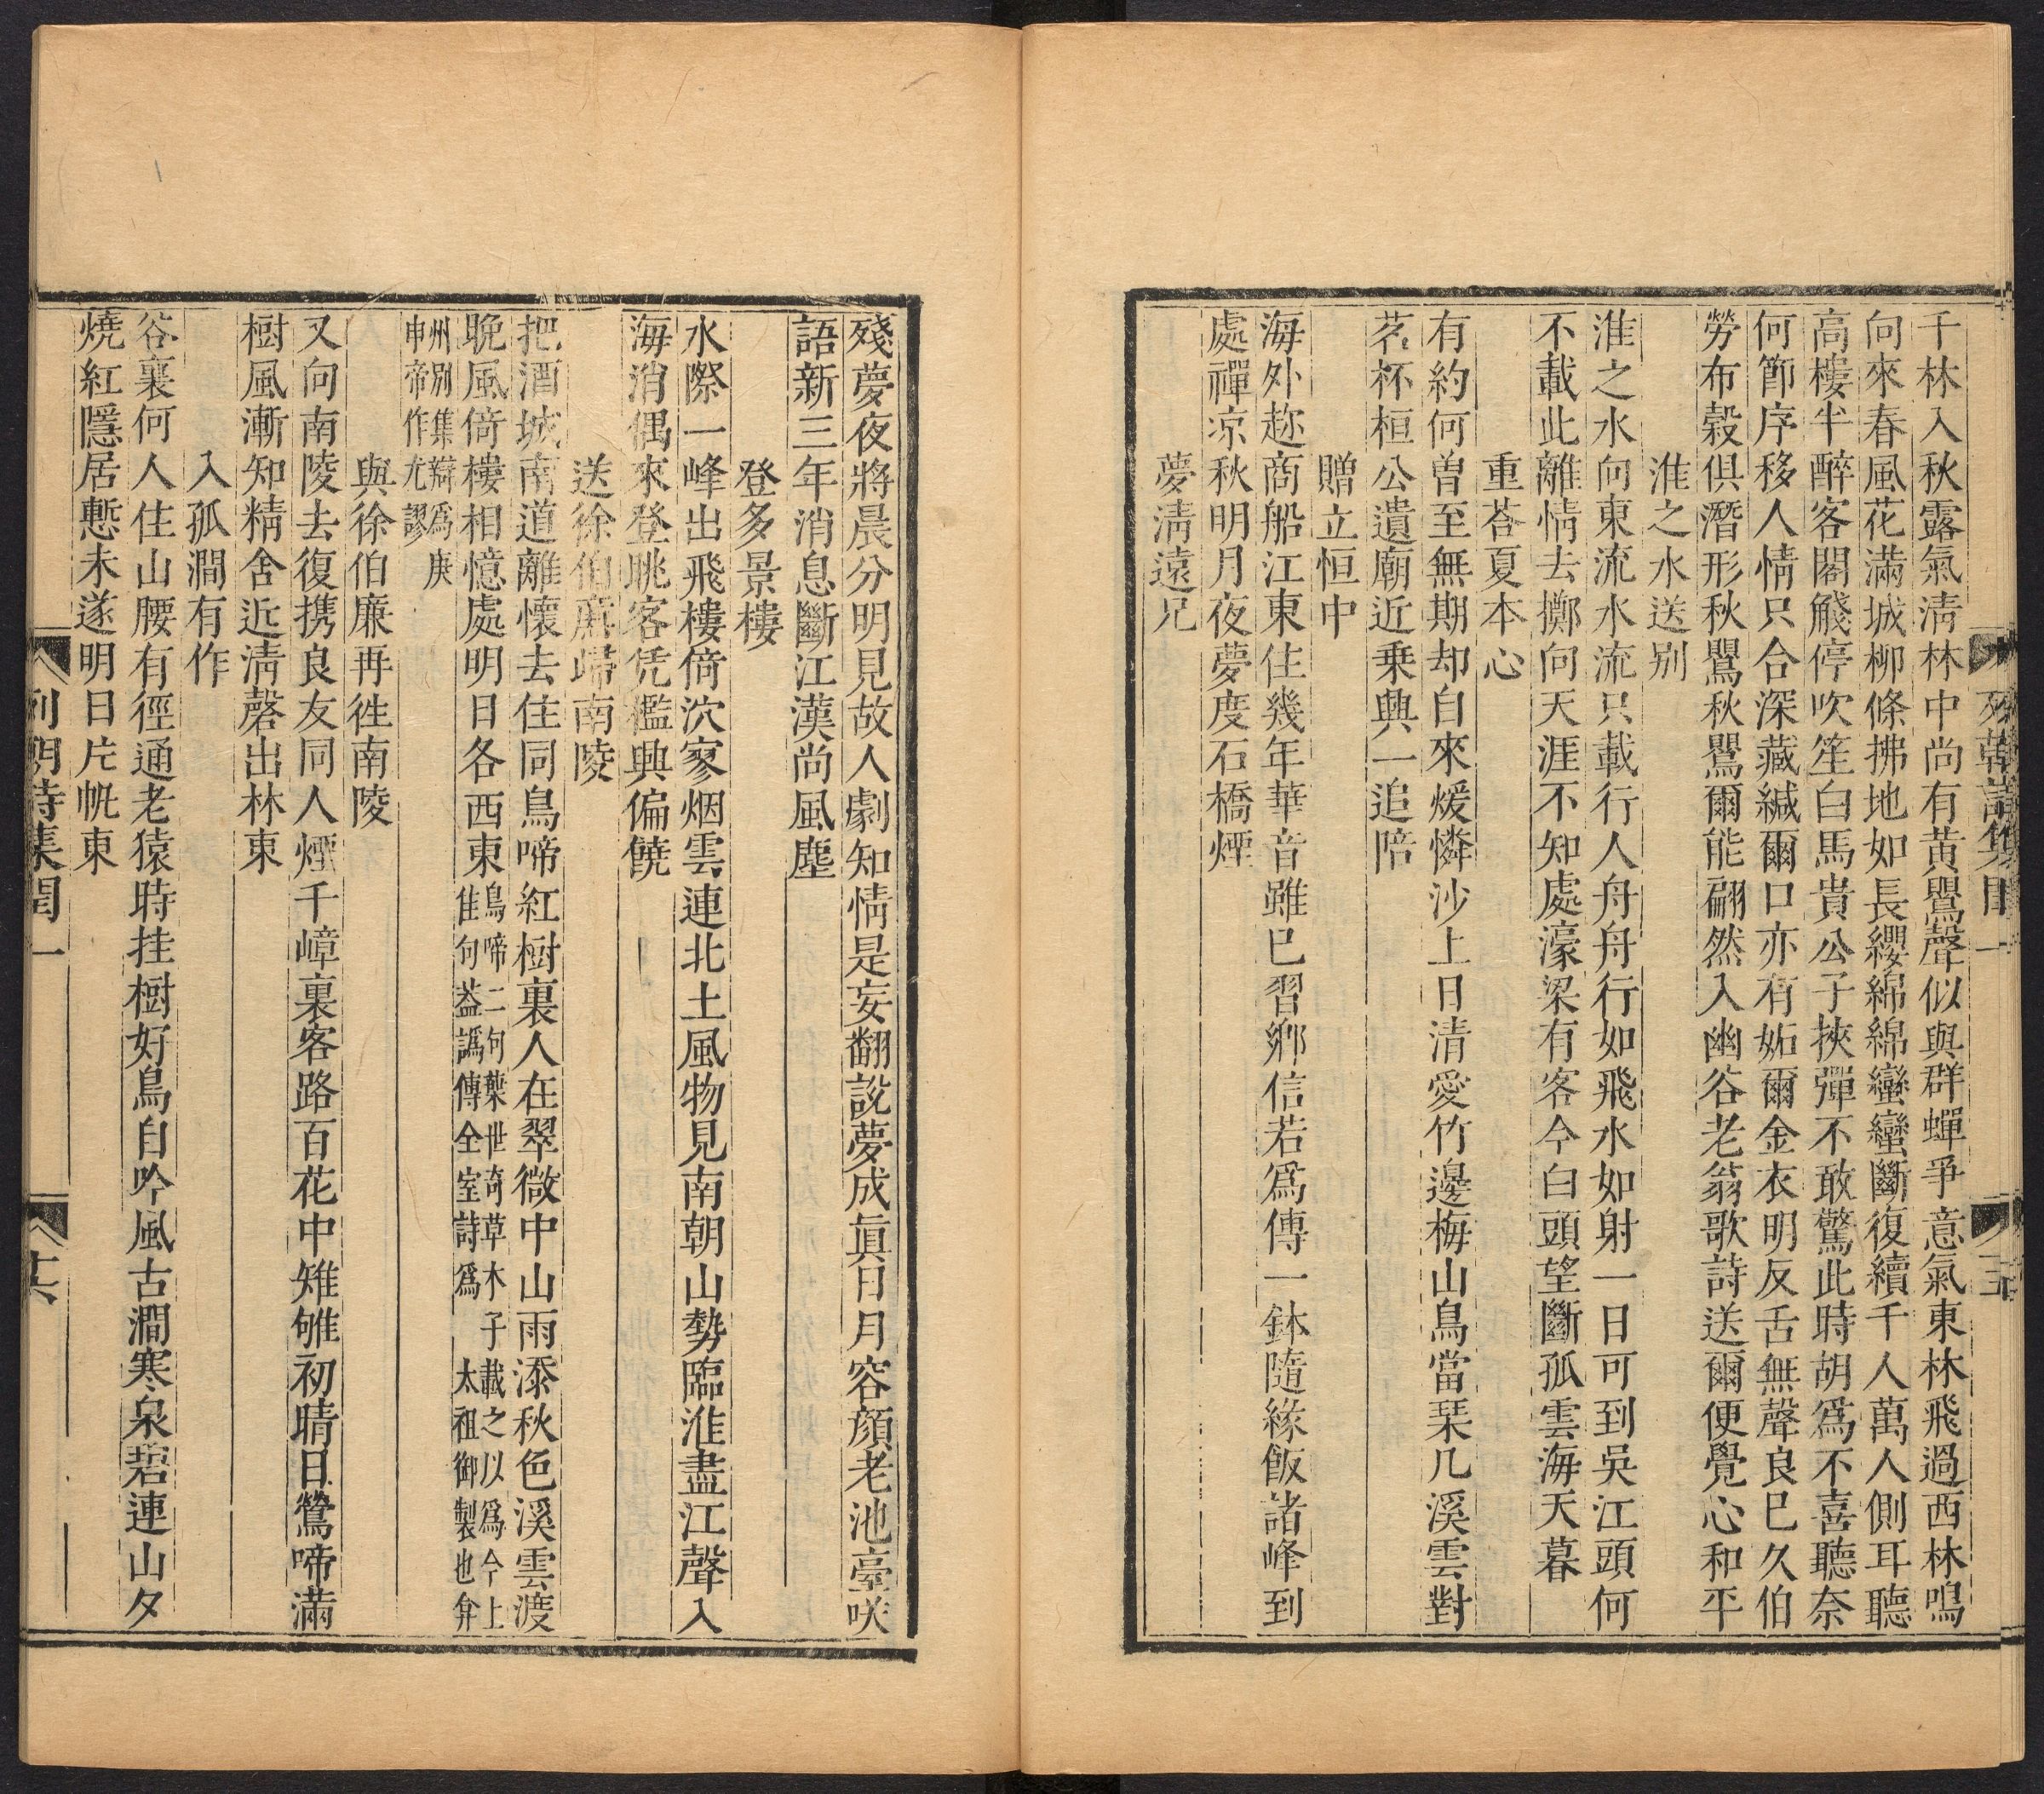 千林入秋露氣淸林中尚有黃鸎聲似與群蟬爭意氣東林飛過西林鳴
向來春風花滿城柳條拂地如長纓綿綿蠻蠻斷復續千人萬人側耳聽
高樓半醉客閣觴停吹笙白馬貴公子挾彈不敢驚此時胡爲不喜聽奈
何節序移人情只合深藏緘爾口亦有妬爾金衣明反舌無聲良已久伯
勞布穀俱潛形秋鸎秋鸎爾能翩然入幽谷老翁歌詩送爾便覺心和平
淮之水送别
淮之水向東流水流只載行人舟舟行如飛水如射一日可到吳江頭何
不載此離情去擲向天涯不知處濠梁有客今白頭望斷孤雲海天暮
重荅夏本心
有約何曽至無期却自來煖憐沙上日清愛竹邊梅山鳥當琹几溪雲對
茗杯桓公遺廟近乗興一追陪
贈立恒中
海外趂商船江東住幾年華音雖巳習鄉信若爲傳一鉢隨緣飯諸峰到
處禪凉秋明月夜夢度石橋煙
夢淸遠兄
殘夢夜將晨分明見故人劇知情是妄翻說夢成眞日月容顔老池臺咲
語新三年消息斷江漢尚風塵
登多景樓
水際一峰出飛樓倚泬寥烟雲連北土風物見南朝山勢臨淮盡江聲入
海消偶來登眺客凭檻興偏饒
送徐伯廉歸南陵
把酒城南道離懷去住同鳥啼紅樹裏人在翠微中山雨添秋色溪雲渡
晩風倚樓相憶處明日各西東鳥啼二句葉世竒草木子載之以爲今上
佳句葢譌傳全室詩爲太祖御製也弇
州別集辯爲庚
申帝作尤謬
與徐伯廉再徃南陵
又向南陵去復携良友同人煙千嶂裏客路百花中雉雊初晴日鶯啼滿
樹風漸知精舍近淸磬出林東
入孤澗有作
谷裏何人住山腰有徑通老猿時挂樹好鳥自吟風古澗寒泉碧連山夕
燒紅隱居慙未遂明日片帆東
列朝詩集閏一
十六